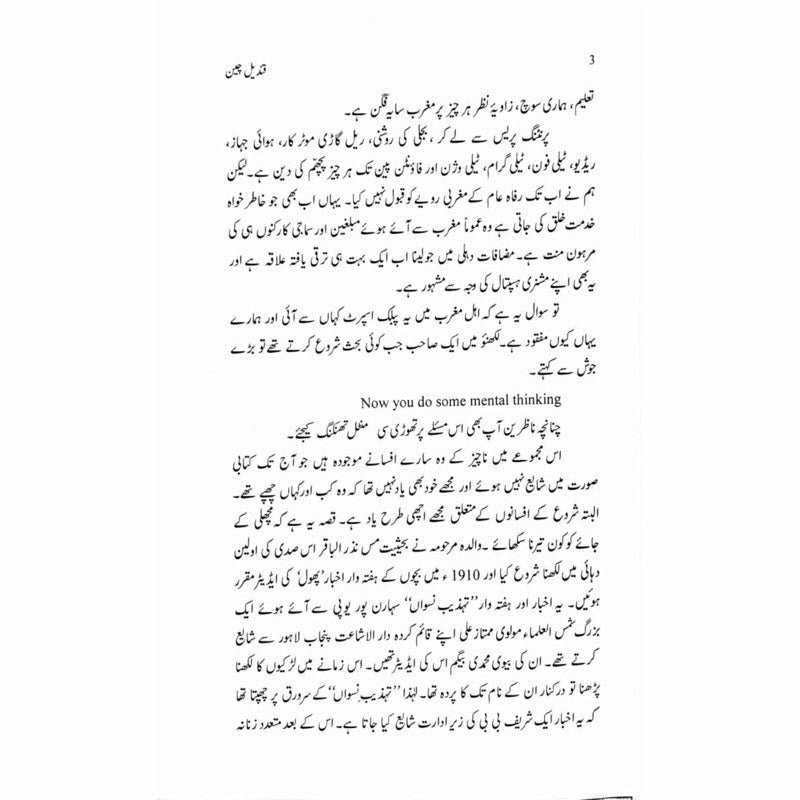 3
قندیل چین
تعلیم، ہماری سوچ، زاویۂ نظر ہر چیز پر مغرب سایہ فگن ہے۔
پرنٹنگ پریس سے لے کر، بجلی کی روشنی، ریل گاڑی موٹر کار، ہوائی جہاز،
ریڈیو، ٹیلی فون، ٹیلی گرام، ٹیلی وژن اور فاؤنٹن پین تک ہر چیز پچھّم کی دین ہے۔ لیکن
ہم نے اب تک رفاہ عام کے مغربی رویے کو قبول نہیں کیا۔ یہاں اب بھی جو خاطر خواہ
خدمت خلق کی جاتی ہے وہ عموماً مغرب سے آئے ہوئے مبلغین اور سماجی کارکنوں ہی کی
مرہون منت ہے۔ مضافات دہلی میں جولینا اب ایک بہت ہی ترقی یافتہ علاقہ ہے اور
یہ بھی اپنے مشنری ہسپتال کی وجہ سے مشہور ہے۔
تو سوال یہ ہے کہ اہل مغرب میں یہ پبلک اسپرٹ کہاں سے آئی اور ہمارے
یہاں کیوں مفقود ہے۔ لکھنؤ میں ایک صاحب جب کوئی بحث شروع کرتے تھے تو بڑے
جوش سے کہتے۔
Now you do some mental thinking
چنانچہ ناظرین آپ بھی اس مسئلے پر تھوڑی سی مینٹل تھنکنگ کیجئے۔
اس مجموعے میں ناچیز کے وہ سارے افسانے موجودہ ہیں جو آج تک کتابی
صورت میں شایع نہیں ہوئے اور مجھے خود بھی یاد نہیں تھا کہ وہ کب اور کہاں چھپے تھے۔
البتہ شروع کے افسانوں کے متعلق مجھے اچھی طرح یاد ہے۔ قصہ یہ ہے کہ مچھلی کے
جائے کو کون تیرنا سکھائے۔ والدہ مرحومہ نے بحیثیت مس نذر الباقر اس صدی کی اولین
دہائی میں لکھنا شروع کیا اور 1910ء میں بچوں کے ہفتہ وار اخبار ’پھول‘ کی ایڈیٹر مقرر
ہوئیں۔ یہ اخبار اور ہفتہ وار ’’تہذیب نسواں‘‘ سہارن پور یو پی سے آئے ہوئے ایک
بزرگ شمس العلماء مولوی ممتاز علی اپنے قائم کردہ دار الاشاعت پنجاب لاہور سے شایع
کرتے تھے۔ ان کی بیوی محمدی بیگم اس کی ایڈیٹر تھیں۔ اس زمانے میں لڑکیوں کا لکھنا
پڑھنا تو درکنار ان کے نام تک کا پردہ تھا۔ لہٰذا ’’تہذیبِ نسواں‘‘ کے سرورق پر چھپتا تھا
کہ یہ اخبار ایک شریف بی بی کی زیر ادارت شایع کیا جاتا ہے۔ اس کے بعد متعدد زنانہ